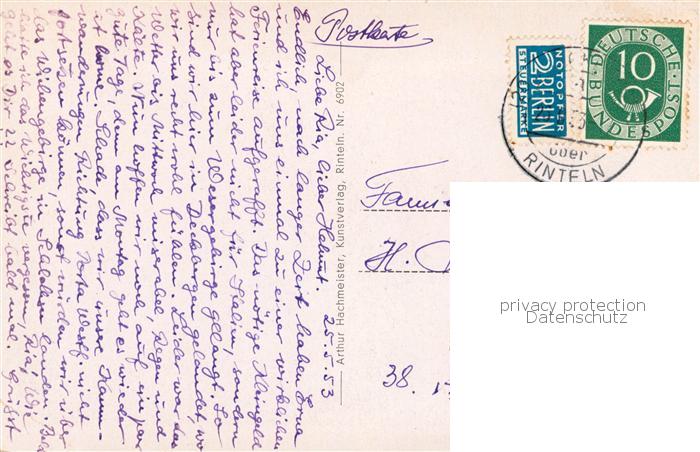 Postkarte
25.5.53
Liebe Ria, lieber Helmut.
Endlich nach langer Zeit haben Erna
und ich uns einmal zu einer wirklichen
Ferienreise aufgerafft. Das nötige Kleingeld
hat aber leider nicht für Italien, sondern
nur bis zum Wesergebirge gelangt. So
sind wir hier in Deckbergen gelandet, wo
wir uns recht wohl fühlen. Leider war das
Wetter bis Mittwoch miserabel, Regen und
Kälte. Nun hoffen wir noch auf ein paar
gute Tage, denn am Montag geht es wieder
Schade dass wir unsere Kamm-
wanderungen Richtung Porta Westf. nicht
fortsetzen können, sonst würden wir über
das Wiehengebirge in landen. 
hätte ich das Wichtigste vergessen, Ria, wie
geht es Dir? Schreibt bald mal. Grüsst
Arthur Hachmeister, Kunstverlag, Rinteln. Nr. 6902
NOTOPFER
2 BERLIN
STEUERMARKE
DEUTSCHE
BUNDESPOST
10
über
RINTELN
H.
38.
privacy protection
Datenschutz